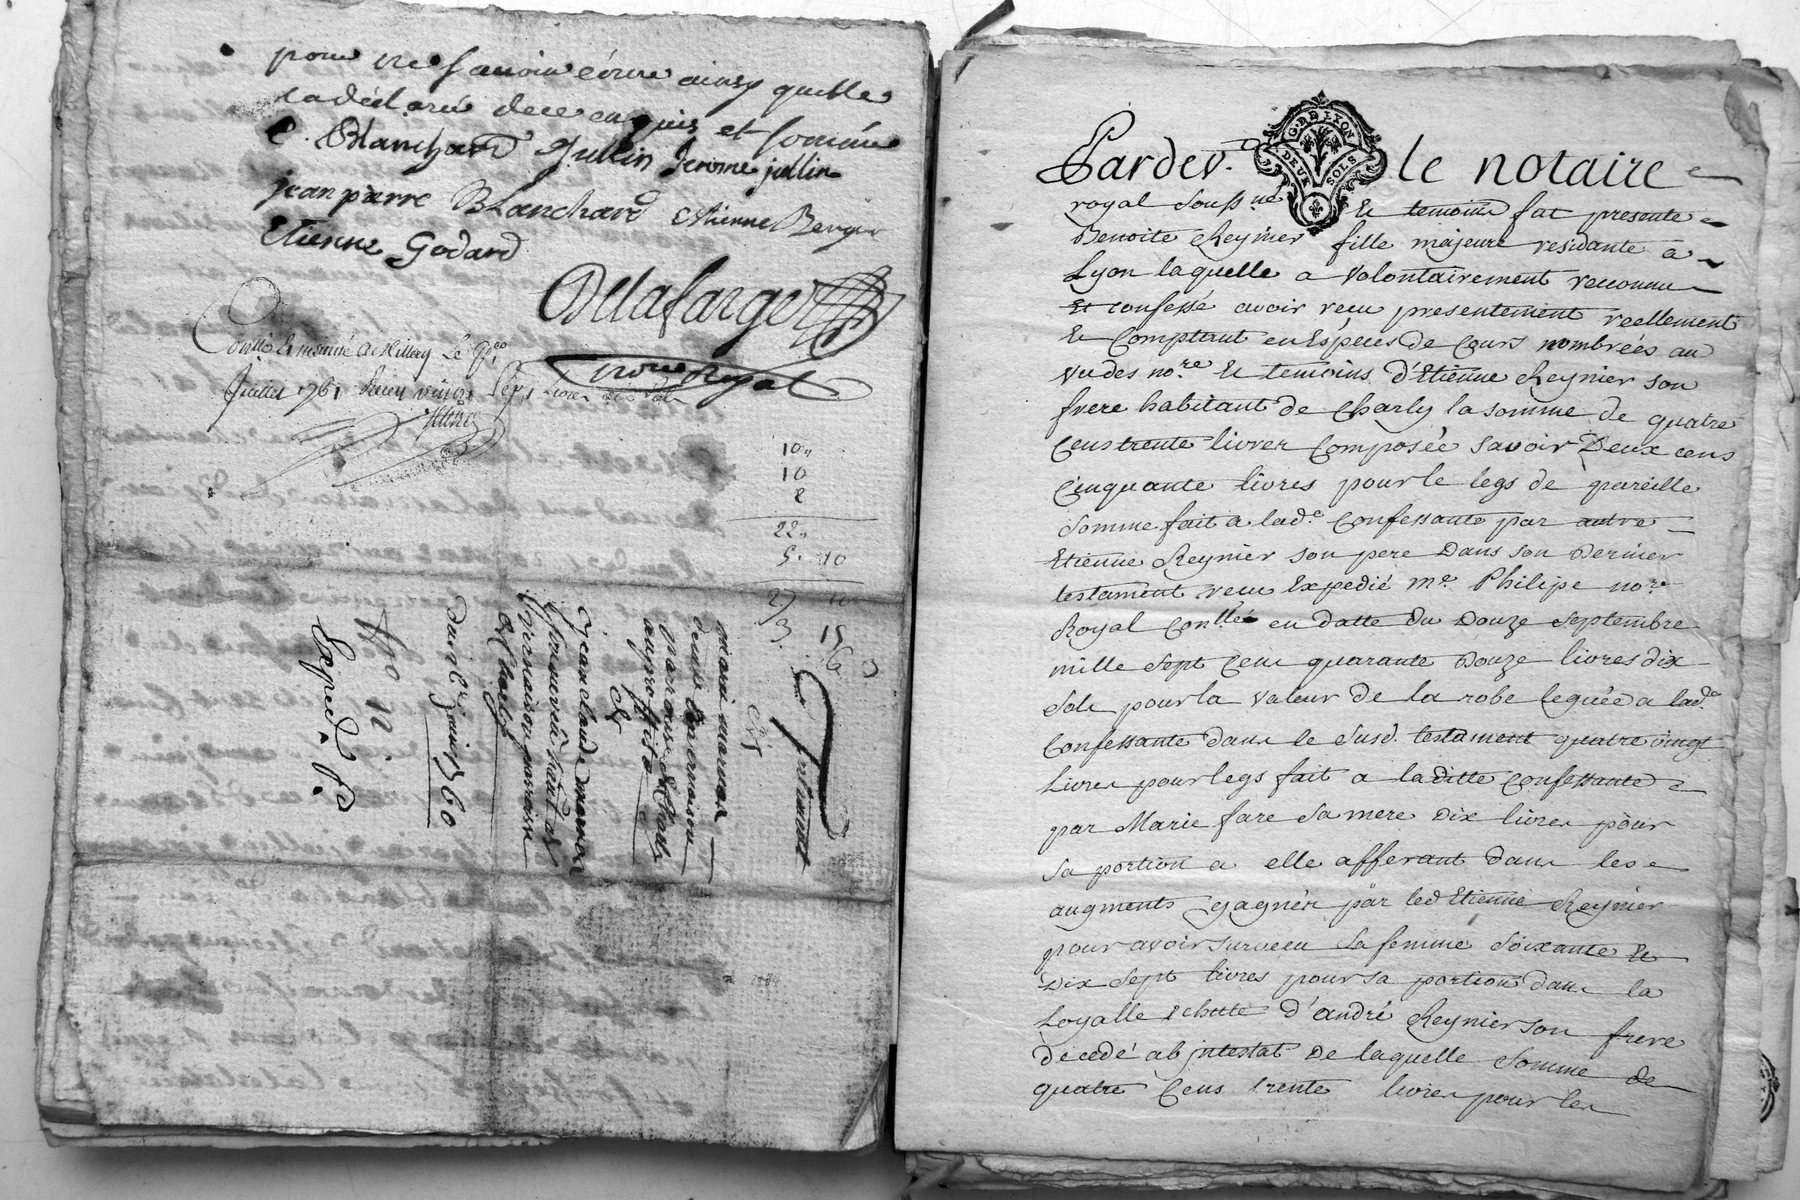 pour ne sçavoir écrire ainsy quelle
la déclaré de ce enquis et sommée
C. Blanchard Jullin Jerome jullin
jean pierre Blanchard etienne Berger
Etienne Godard
Delafarge
no.re Royal
Conllé & insinué a Millery Le 9e
Juillet 1761 Receu
10
10
2
22
5. 10
27 10
3. 15
Testament
mari
de
auproffit de
& jean claude
& Charly
Du 12e juin 1760
No 12
Exped. f.d
G. DE LYON
DEUX SOLS
Pardev.t le notaire
royal souss.né Et temoins fut presente
Benoite Reynier fille majeure residante à
Lyon laquelle a volontairement reconnu
Et confessé avoir reçu presentement reellement
Et Comptant en Espèces de Cours nombrées au
vu des no.re Et temoins d'Etienne Reynier son
frere habitant de Charly la somme de quatre
Cens trente livres Composée savoir Deux cens
Cinquante livres pour le legs de pareille
somme fait a lad.e Confessante par autre
Etienne Reynier son pere Dans son dernier
testament recu Expedié m.e Philipe no.re
Royal Conllé en datte du Douze septembre
mille sept Cens quarante Douze livres dix
sols pour la valeur de la robe leguée a lad.e
Confessante dans le susd. testament quatre vingt
livres pour legs fait a laditte Confessante
par Marie fare sa mere Dix livres pour
sa portion a elle afferant dans les
augments gagnés par led Etienne Reynier
pour avoir survecu sa femme soixante Et
Dix sept livres pour sa portion dans la
Loyalle Echute d'andré Reynier son frere
decedé ab jntestat De laquelle somme de
quatre Cens trente livres pour les